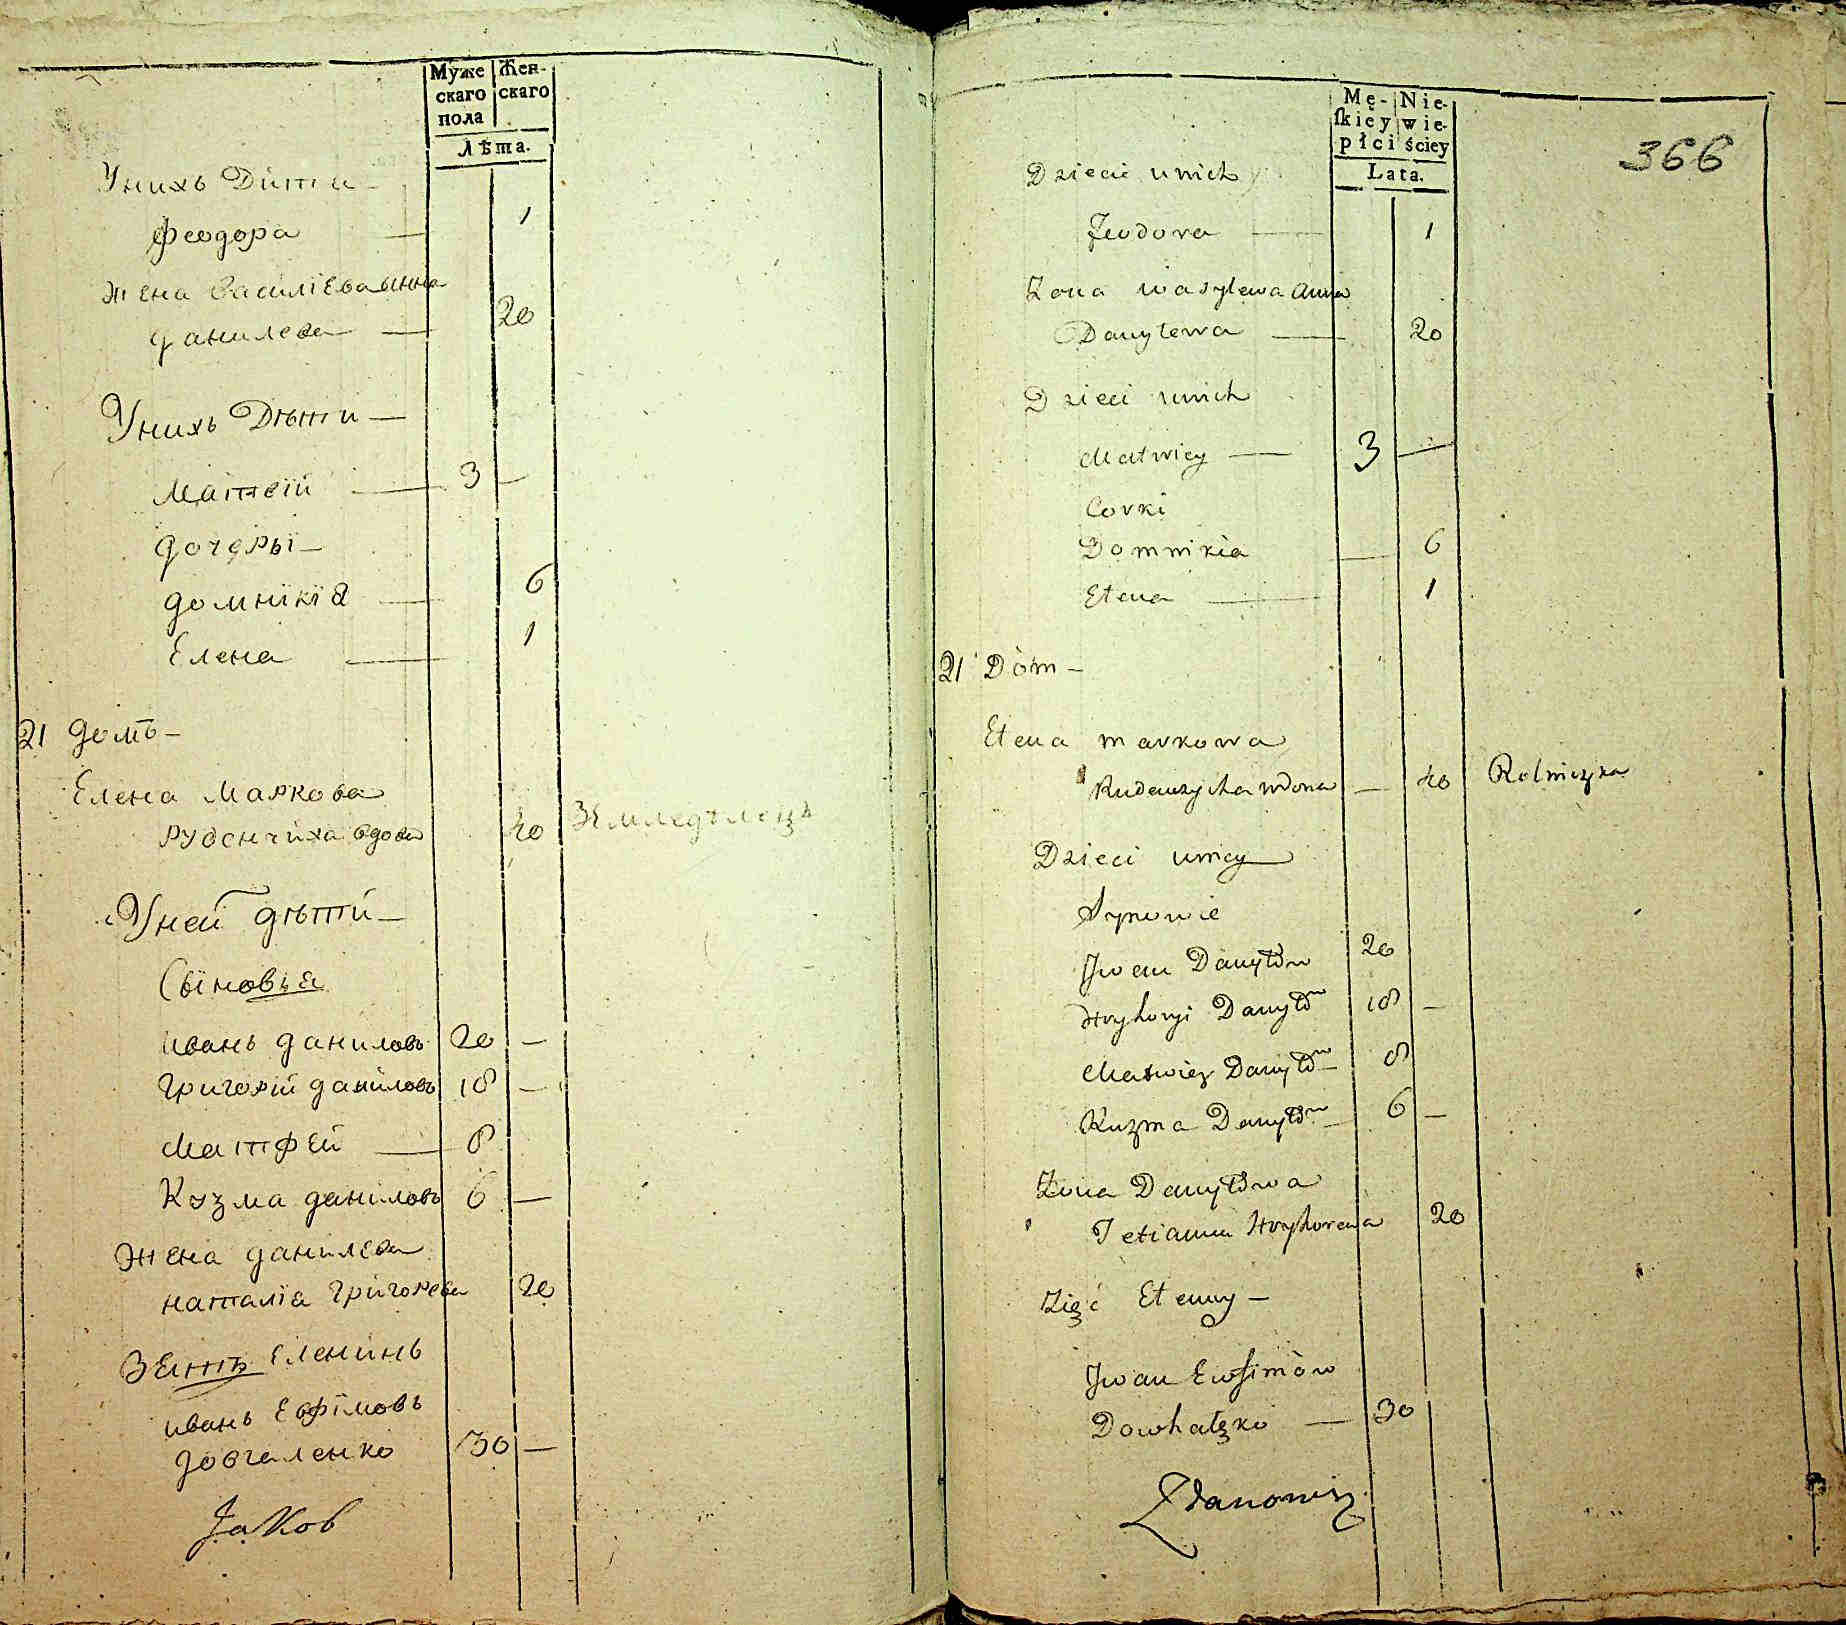 Муже скаго пола
Жен скаго
Лѣта.
Унихъ Дѣти
Феодора — 1
Жена Василіева Анна
Данилева — 20
Унихъ Дѣти —
Матвій — 3 —
Дочеры —
Домникія — 6
Елена — 1
21 Домъ —
Елена Маркова
Руденчиха вдова 40 Земледѣлецъ
Уней дѣти —
Сыновья
Иванъ Даниловъ 20 —
Григорій Даниловъ 18 —
Матфей — 8
Кузма Даниловъ 6 —
Жена Данилева
Наталія Григорева 20
Зять Еленинъ
Иванъ Евфімовъ
Довгаленко 30 —
Jakob
Mę- skiey płci
Nie- wie- ściey
Lata.
366
Dzieci unich
Feodora — 1
Zona Wasylewa Anna
Danylewa — 20
Dzieci unich
Matwiey — 3 —
Corki
Domnikia — 6
Elena — 1
21 Dòm —
Elena Markowa
Rudenczycha wdowa — 40 Rolniczka
Dzieci uniey
Synowie
Jwan Danyłów 20
Hryhoryi Danyłów 18 —
Matwiey Danyłów — 8
Kuzma Danyłów — 6 —
Zona Danyłowa
Tetianna Hryhorewa 20
Zięć Eleny —
Jwan Ewfimòw
30
Zdanowicz